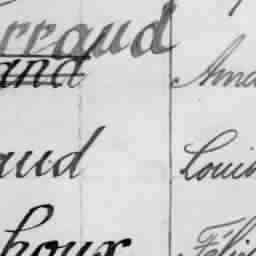 rraud
and Ama
aud Louis
houx Féli